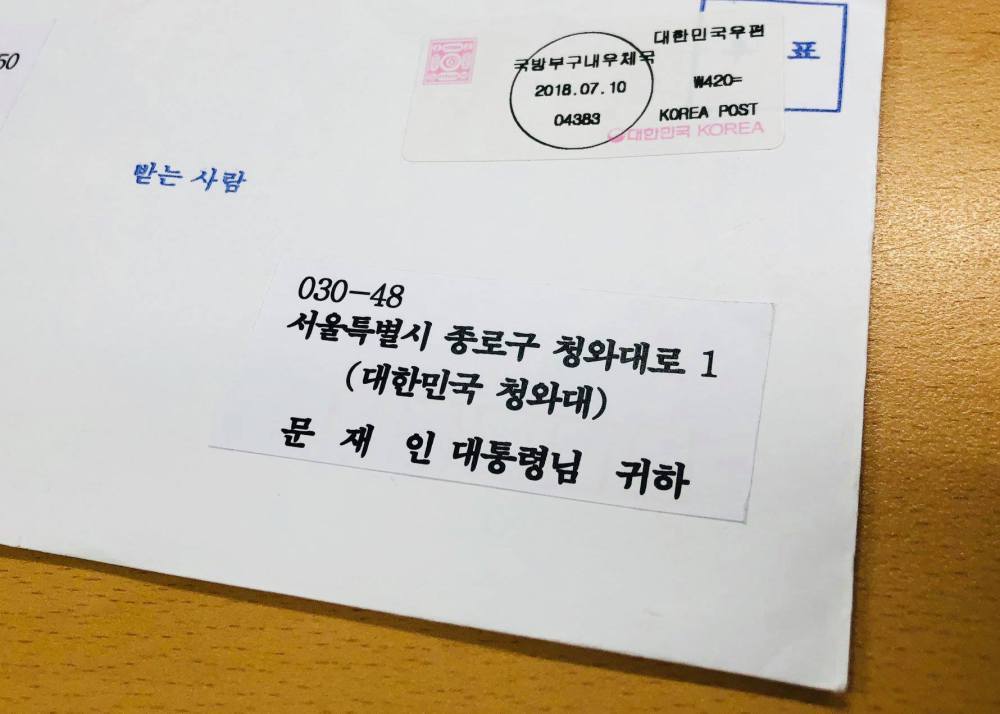 50
대한민국우편
표
국방부구내우체국
2018.07.10
₩420=
04383
KOREA POST
대한민국 KOREA
받는 사람
030-48
서울특별시 종로구 청와대로 1
(대한민국 청와대)
문 재 인 대통령님 귀하